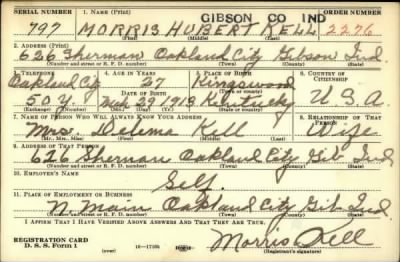 SERIAL NUMBER 1. NAME (Print) ORDER NUMBER
GIBSON CO IND
797 MORRIS HUBERT KELL 2276
(First) (Middle) (Last)
2. ADDRESS (Print)
626 Sherman Oakland City Gibson Ind
(Number and street or R. F. D. number) (Town) (County) (State)
3. TELEPHONE 4. AGE IN YEARS 5. PLACE OF BIRTH 6. COUNTRY OF CITIZENSHIP
Oakland City 27 Kingswood
DATE OF BIRTH (Town or county)
504 29 1913 Kentucky U.S.A.
(Exchange) (Number) (Mo.) (Day) (Yr.) (State or country)
7. NAME OF PERSON WHO WILL ALWAYS KNOW YOUR ADDRESS 8. RELATIONSHIP OF THAT PERSON
Mrs. Delema Kell Wife
(Mr., Mrs., Miss) (First) (Middle) (Last)
9. ADDRESS OF THAT PERSON
626 Sherman Oakland City Gib Ind.
(Number and street or R. F. D. number) (Town) (County) (State)
10. EMPLOYER'S NAME
Self.
11. PLACE OF EMPLOYMENT OR BUSINESS
N. Main Oakland City Gib Ind.
(Number and street or R. F. D. number) (Town) (County) (State)
I AFFIRM THAT I HAVE VERIFIED ABOVE ANSWERS AND THAT THEY ARE TRUE.
REGISTRATION CARD Morris Kell
D. S. S. Form 1 16—17105 (Registrant's signature)